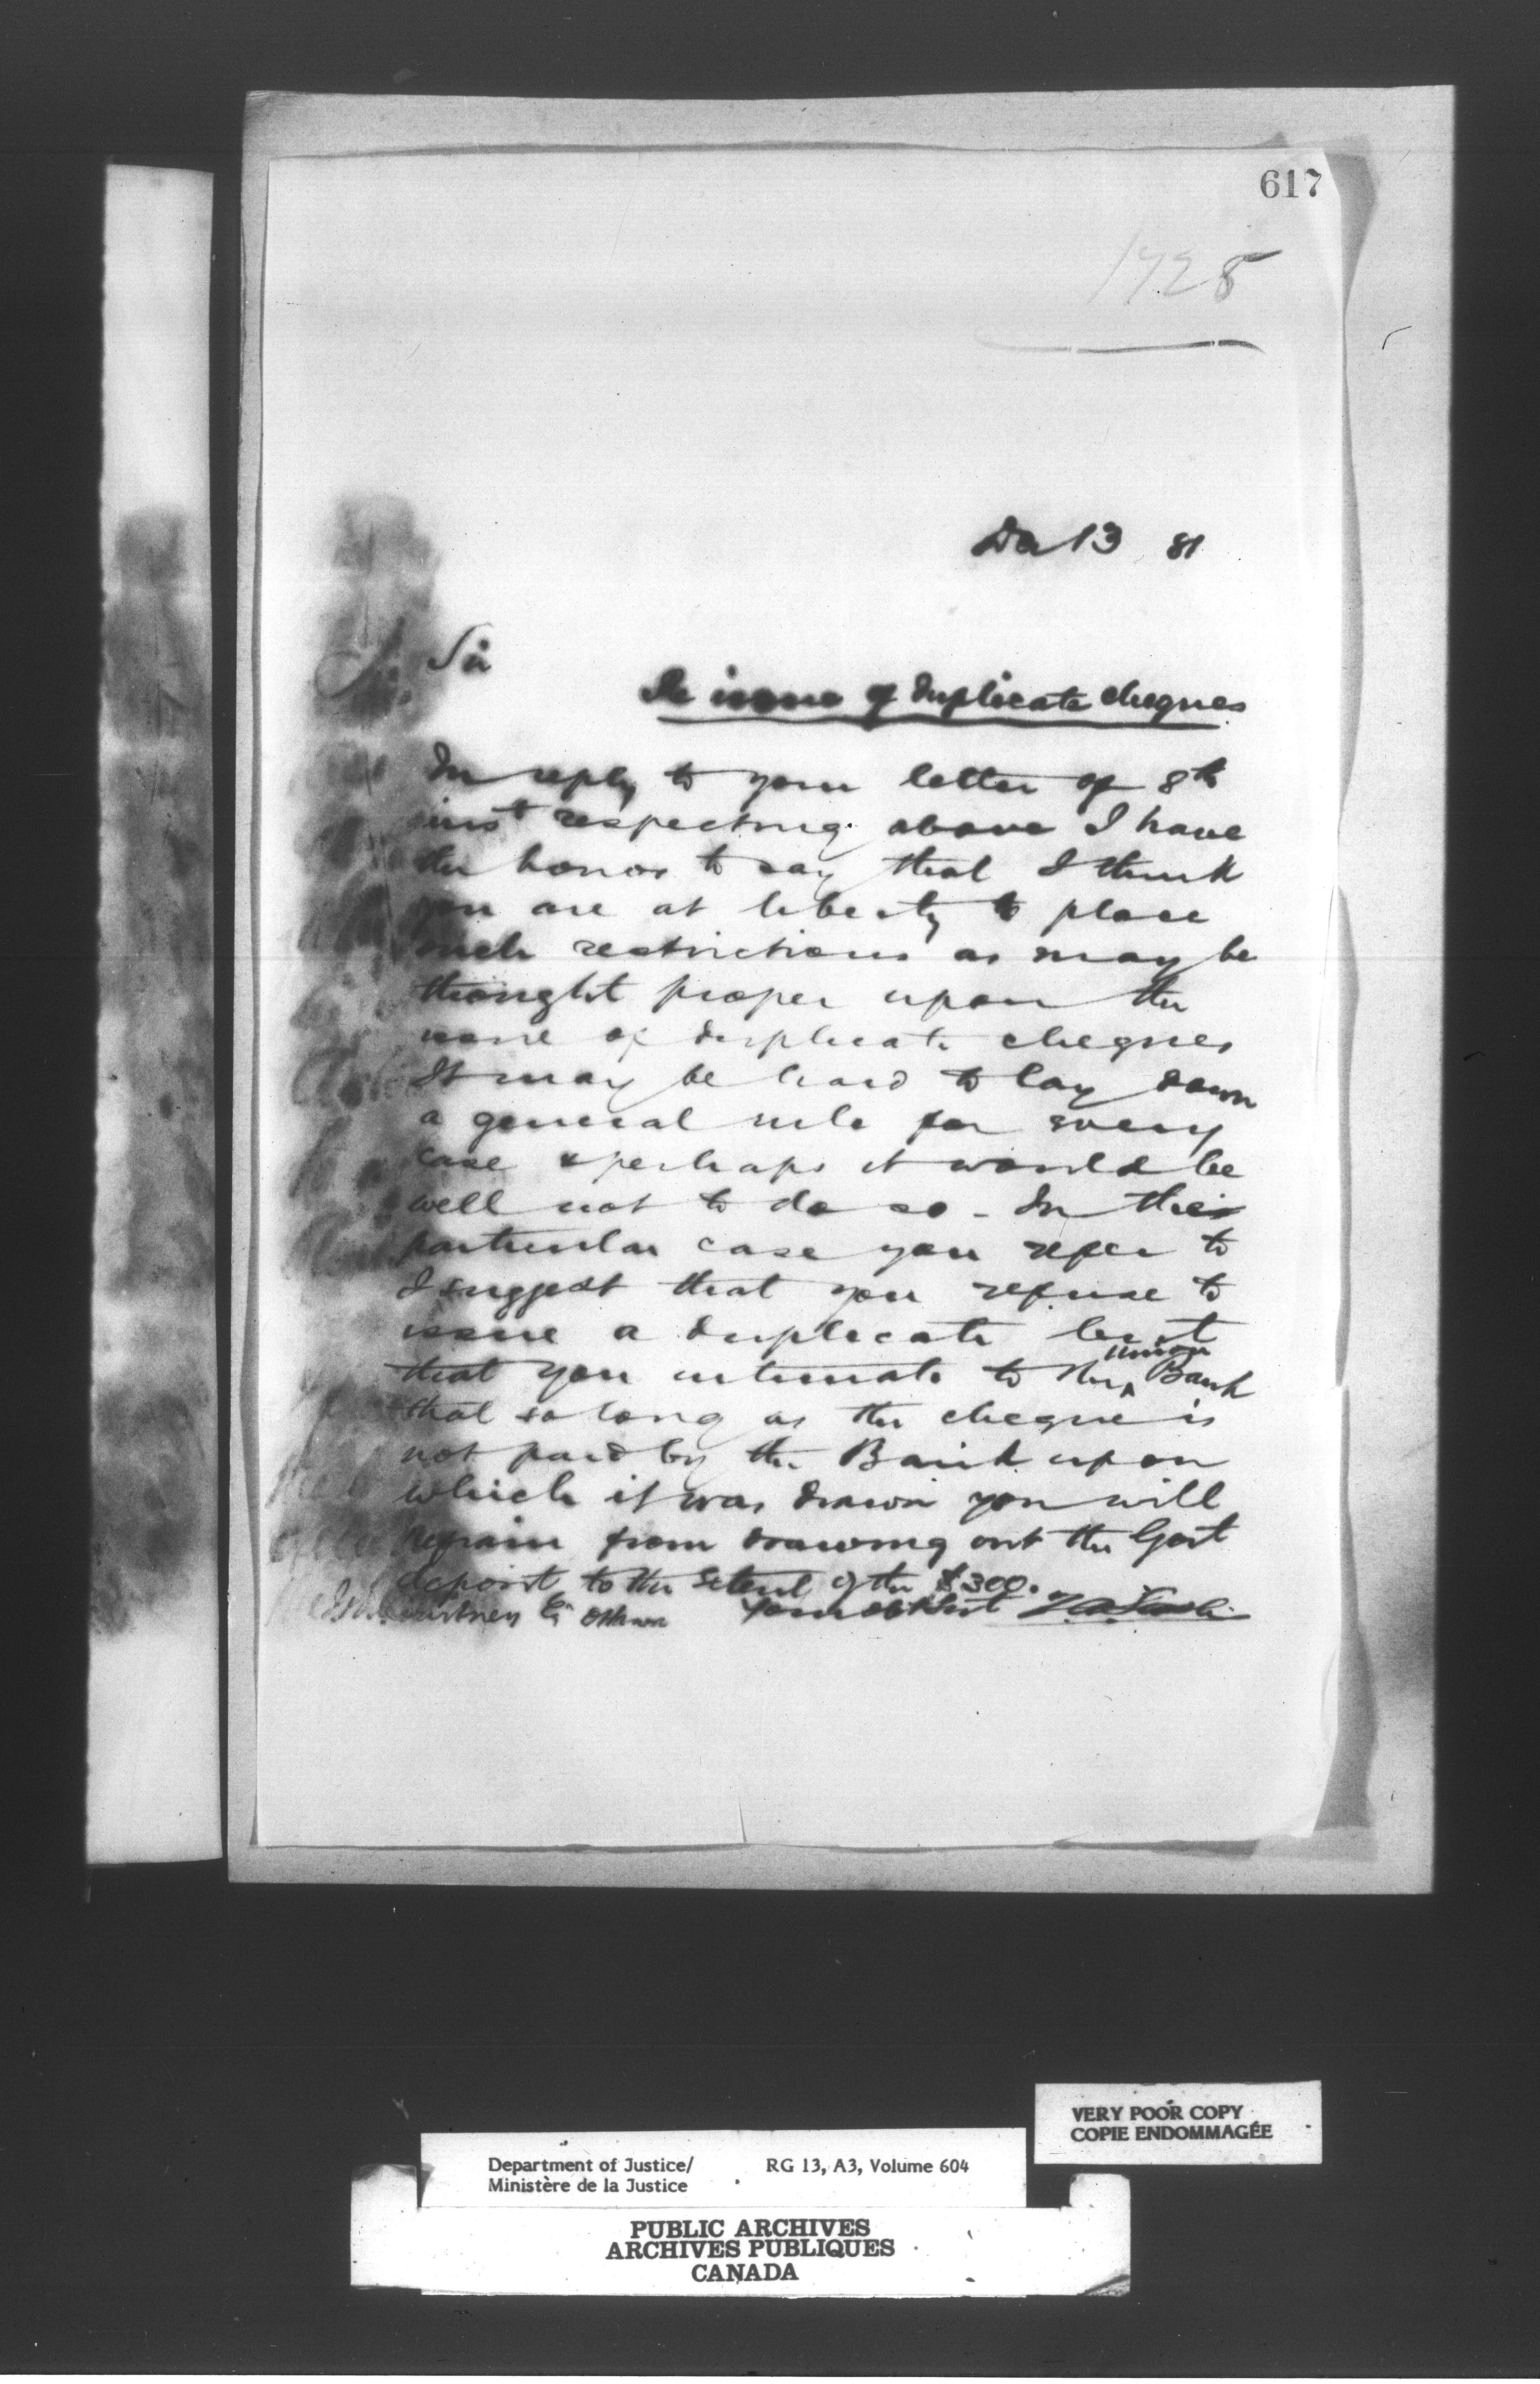 617
1725
Dec 13 81
Sir
Re issue of duplicate cheques
In reply to your letter of 8th
inst respecting above I have
the honor to say that I think
you are at liberty to place
such restrictions as may be
thought proper upon the
issue of duplicate cheques
It may be hard to lay down
a general rule for every
case & perhaps it would be
well not to do so - In the
particular case you refer to
I suggest that you refuse to
issue a duplicate but
that you intimate to the Union Bank
that so long as the cheque is
not paid by the Bank upon
which it was drawn you will
refrain from drawing out the Govt
deposit to the extent of the $300.
Courtney Esq Ottawa Your obt Svt Z A Lash
VERY POOR COPY
COPIE ENDOMMAGÉE
Department of Justice/ RG 13, A3, Volume 604
Ministère de la Justice
PUBLIC ARCHIVES
ARCHIVES PUBLIQUES
CANADA